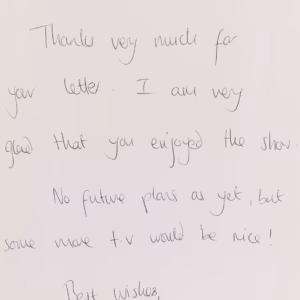 Thanks very much for
your letter. I am very
glad that you enjoyed the show.
No future plans as yet, but
some more t.v would be nice!
Best wishes,